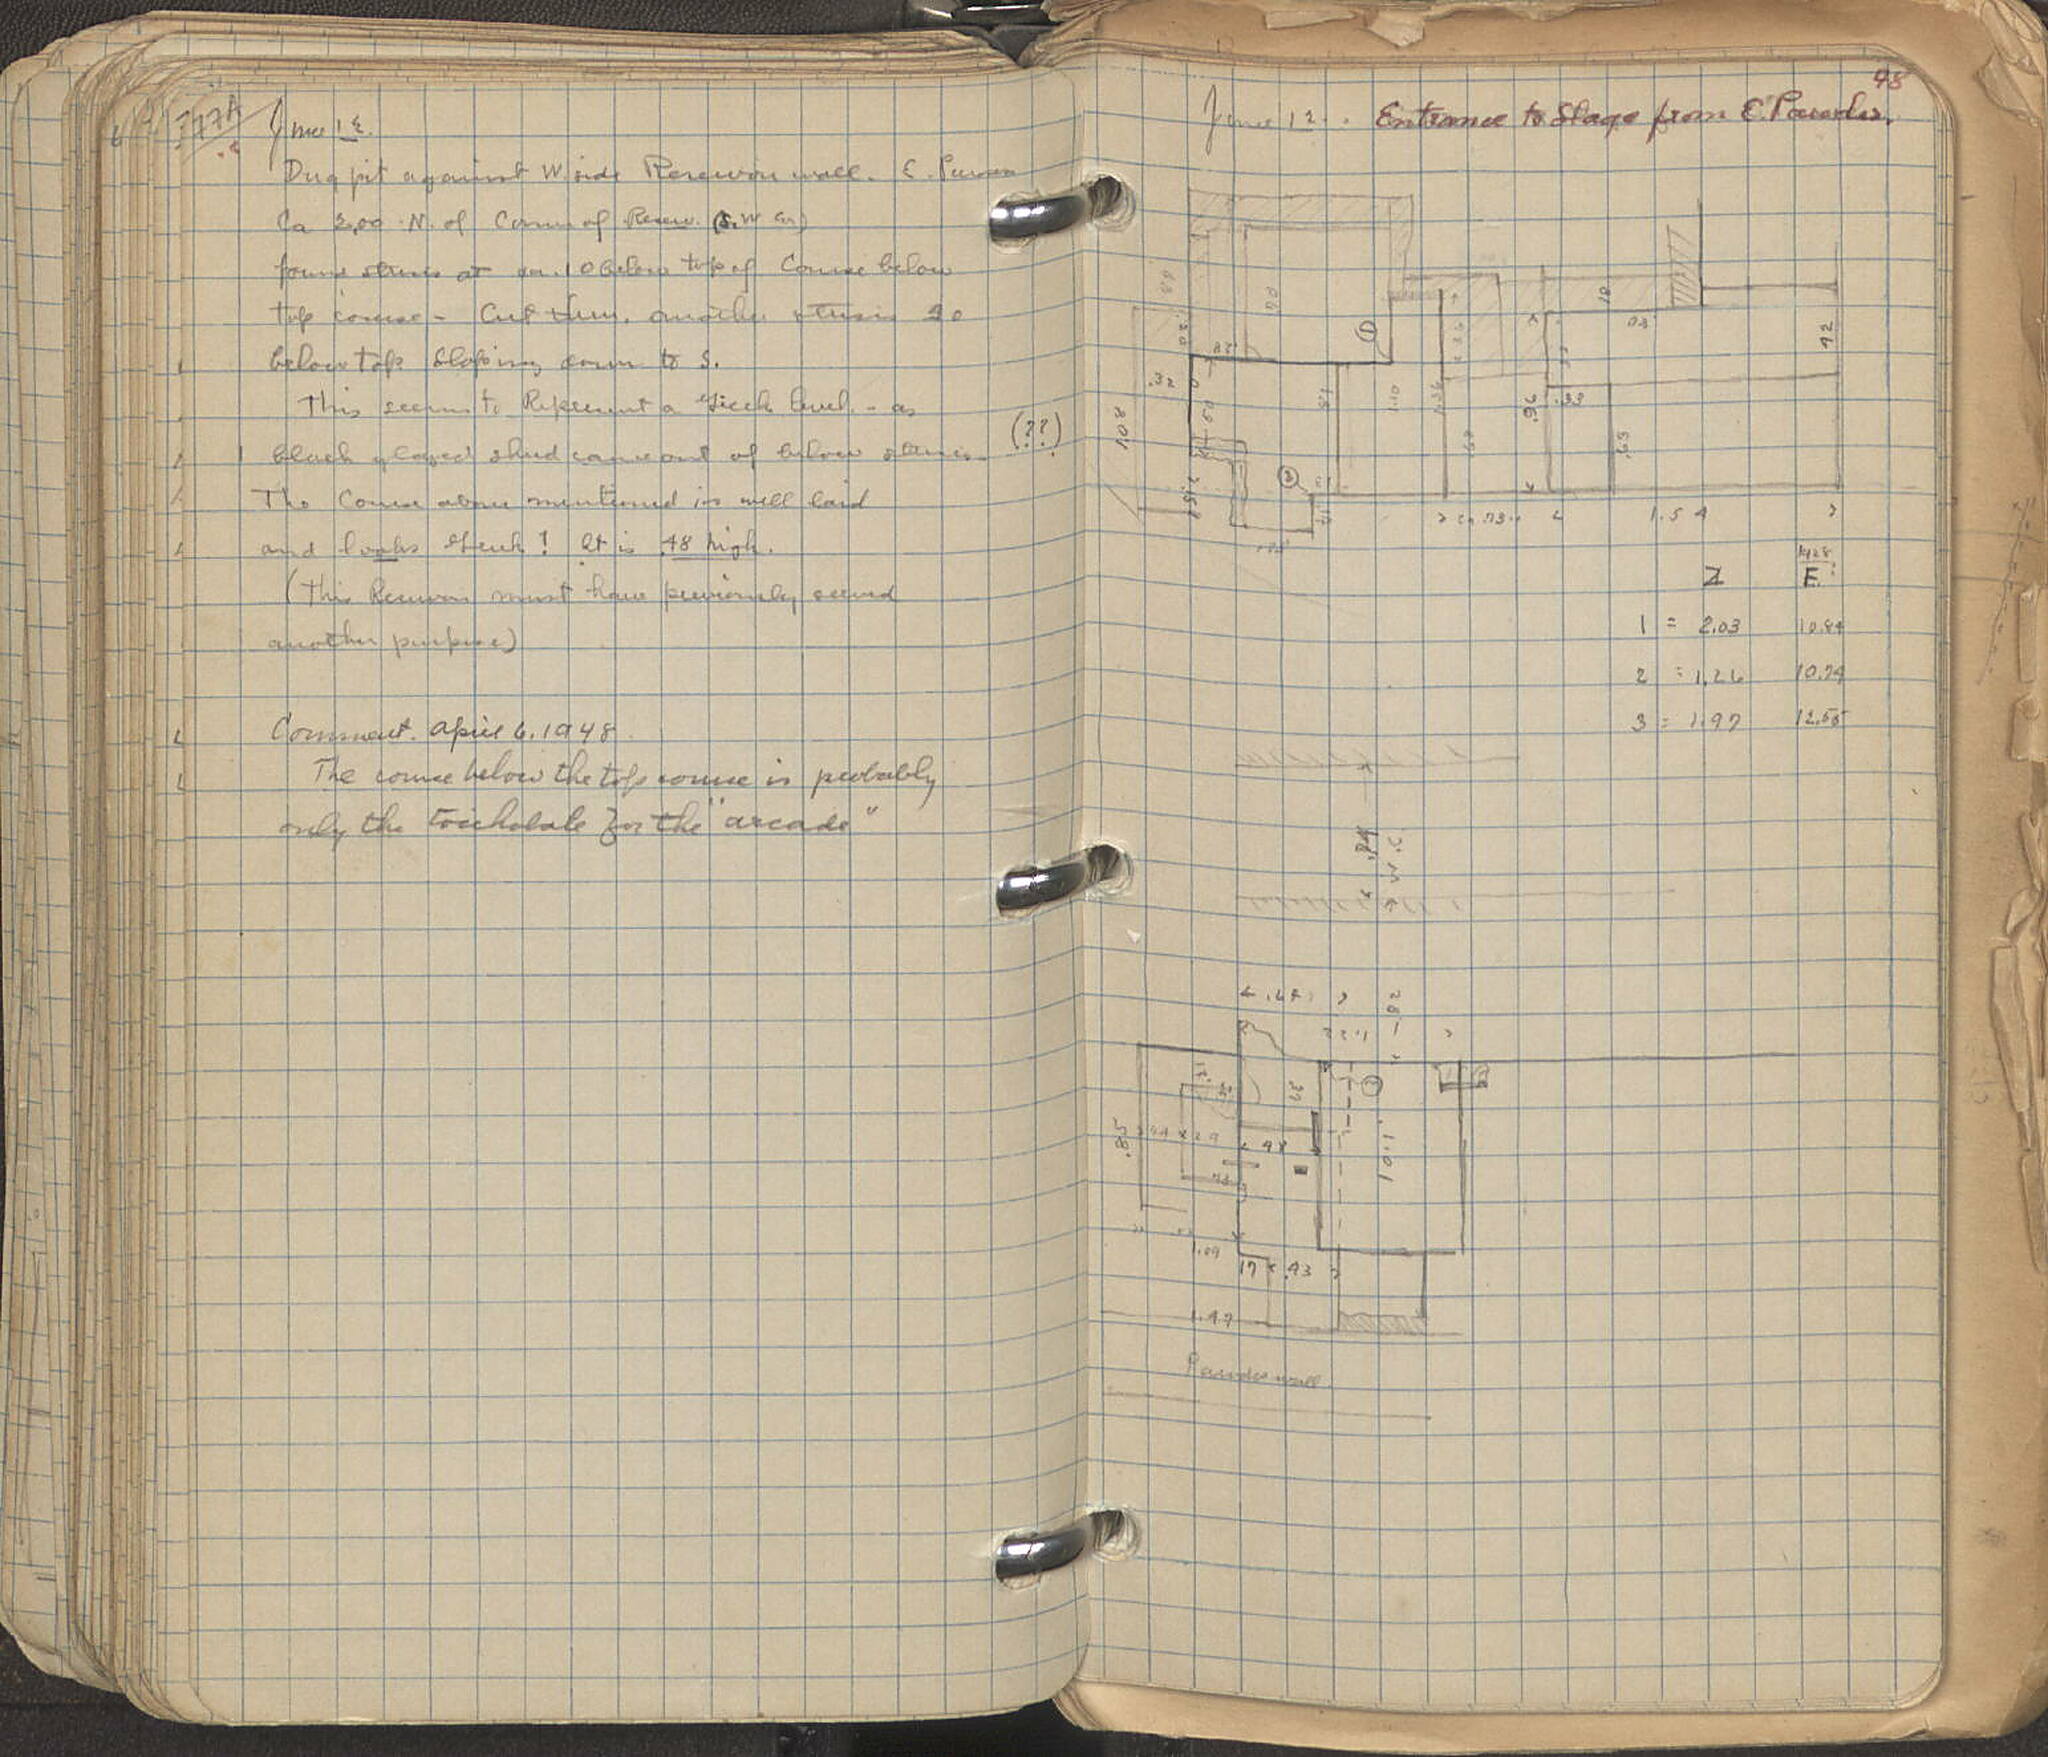 77A
June 12.
Dug pit against W. side Reservoir wall. E. Parodos
Ca 2.00 N. of Corner of Reserv. (S.W Cor)
found stereo at ca .10 below top of Course below
top course - Cut thru. another stereo 20
below top sloping down to S.
This seems to Represent a Greek level - as (??)
black glazed sherd came out of below stereo.
The Course above mentioned is well laid
and looks Greek! It is .48 high.
(This Reservoir must have previously served
another purpose)
Comment. April 6. 1948.
The course below the top course is probably
only the toichobate for the "arcade"
48
June 12. Entrance to Stage from E. Parodos.
.32
1.08
1.10
.96
.33
.63
1.54
Z E.
1 = 2.03 10.84
2 = 1.26 10.74
3 = 1.97 12.55
.84
1.22
.82
.85
.29
.48
1.01
1.09
17 .43
1.47
Parodos wall.